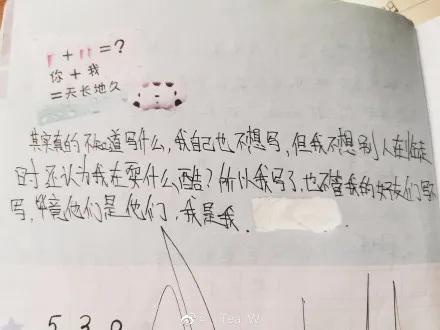 ? + ?? = ?
你 + 我
= 天长地久
其实真的不知道写什么，我自己也不想写，但我不想别人在临走
时还认为我在耍什么酷？所以我写了，也不管我的好友们写不
写，毕竟他们是他们，我是我．
5 3 0
Tea_W